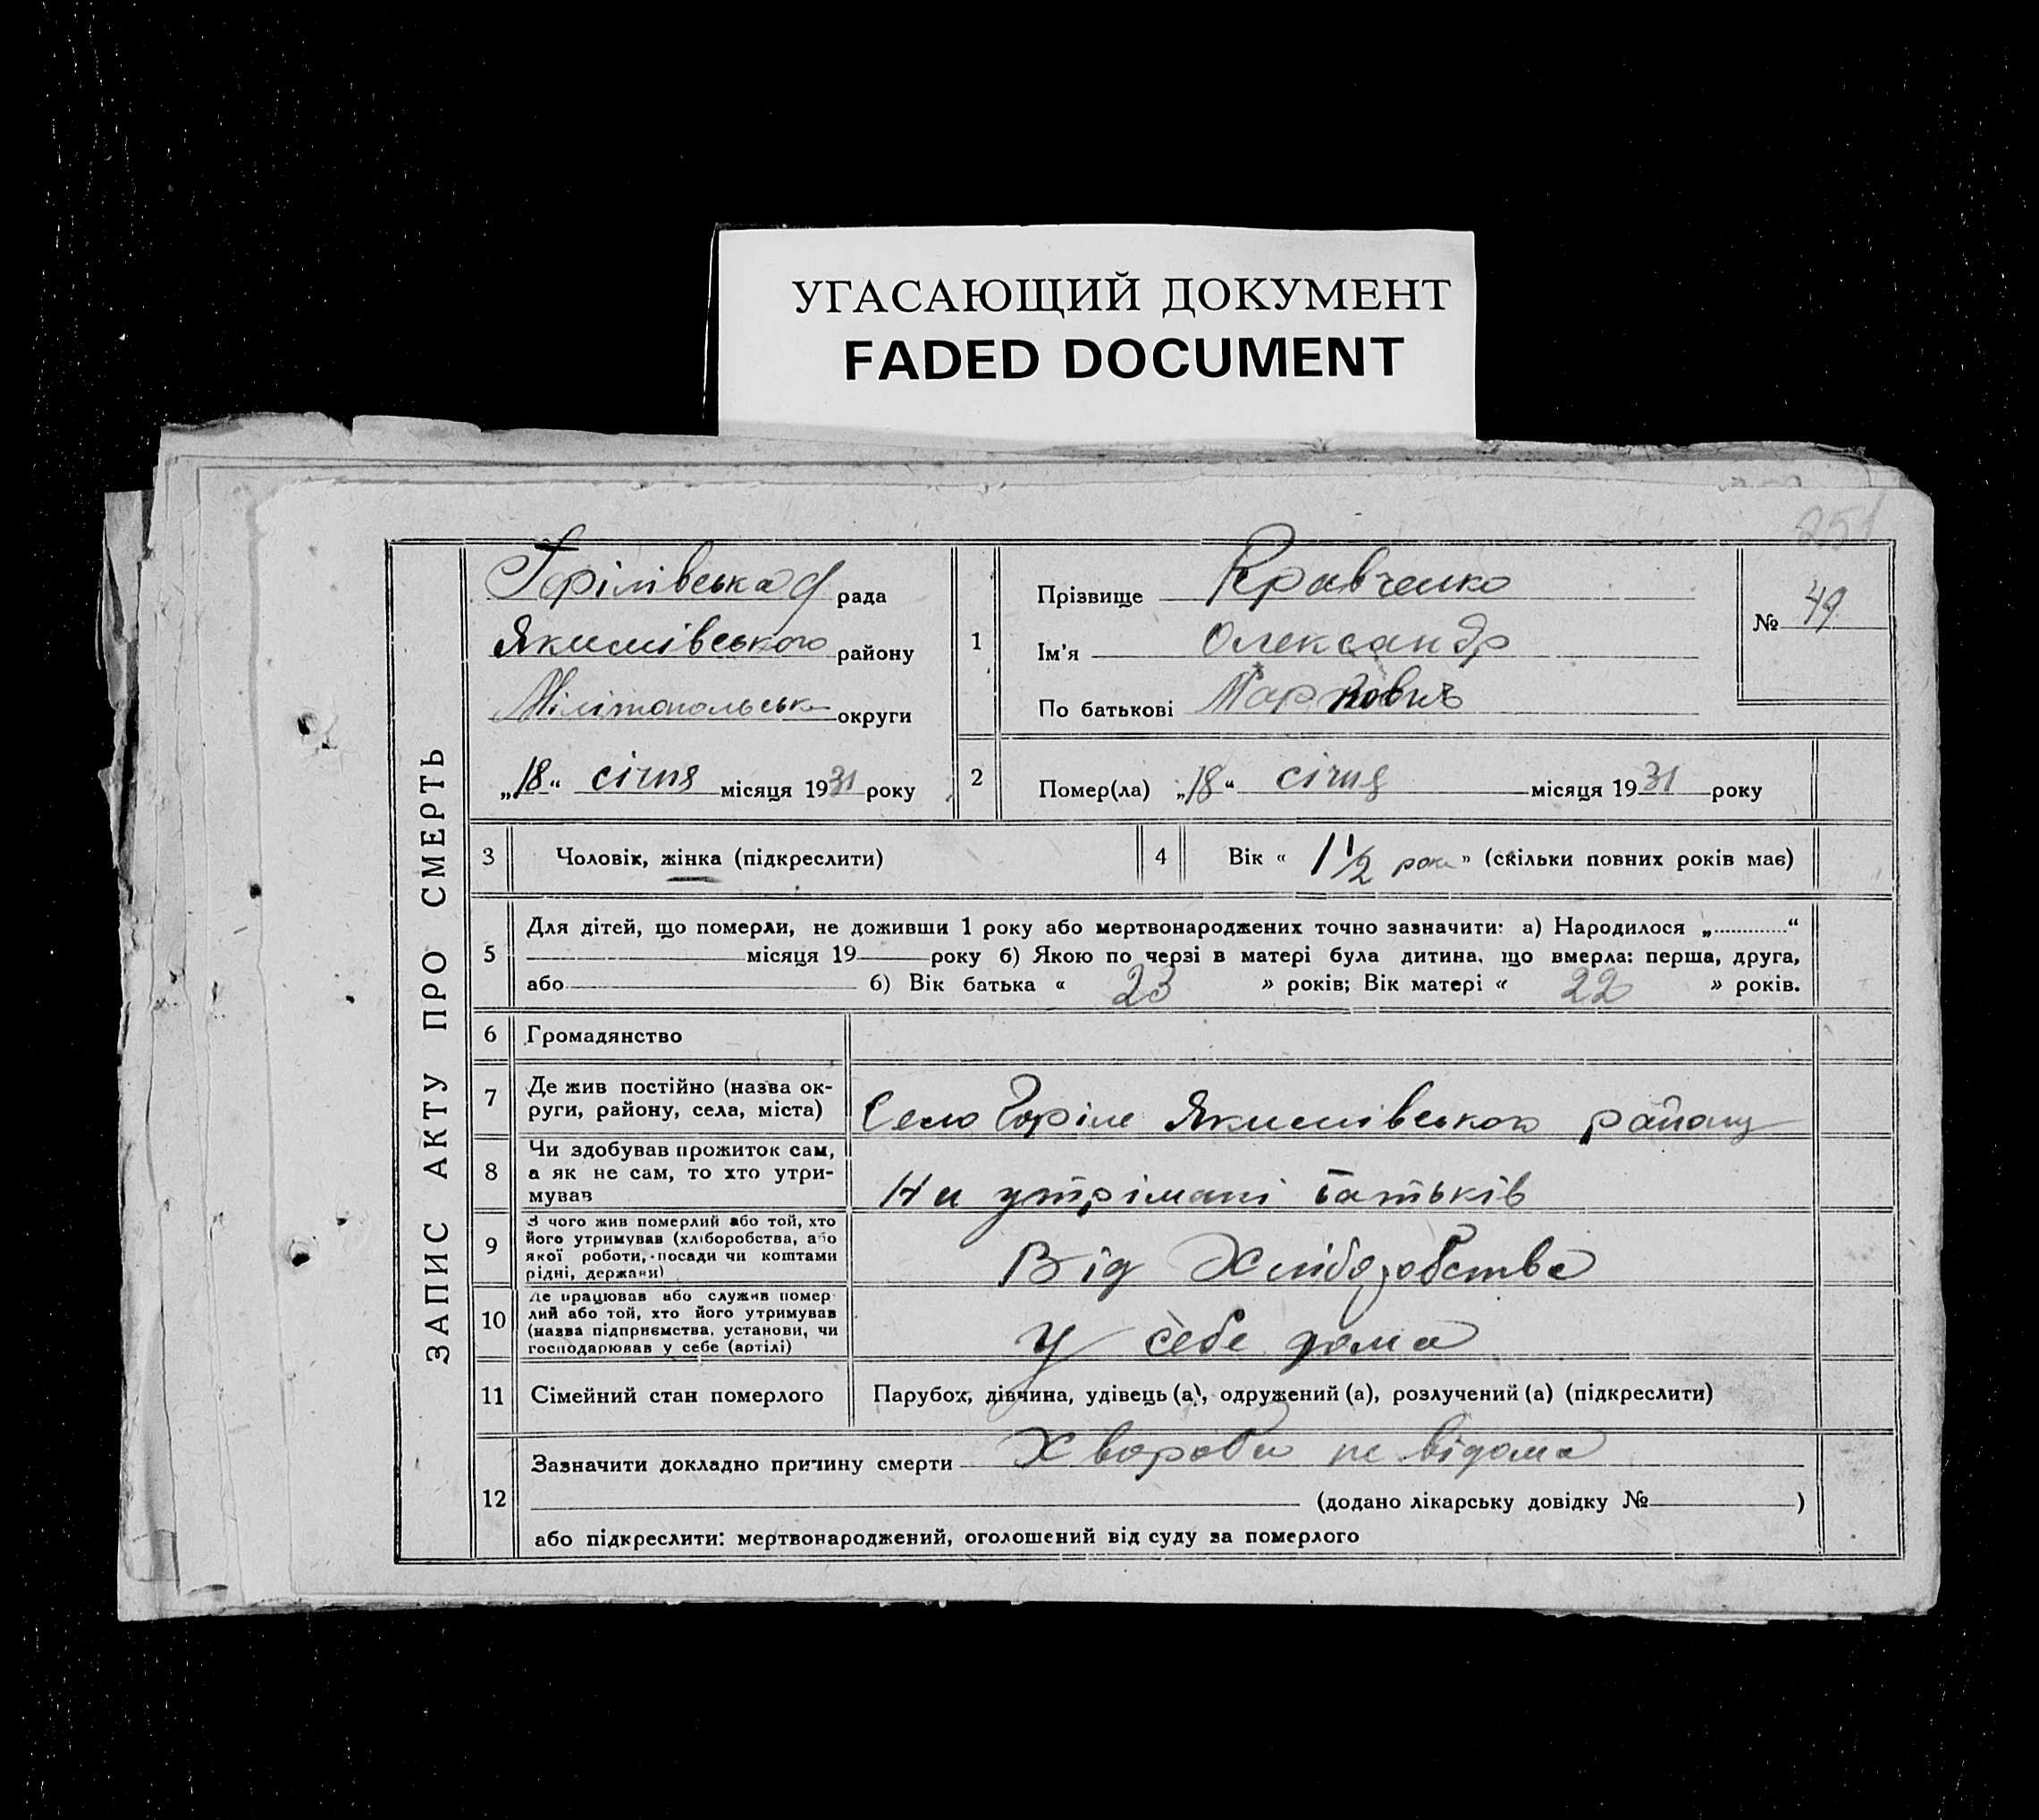 УГАСАЮЩИЙ ДОКУМЕНТ
FADED DOCUMENT
251
ЗАПИС АКТУ ПРО СМЕРТЬ
Горілівська рада
Якимівського району
Мілітопольськ округи
„18“ січня місяця 1931 року
1
Прізвище Кравченко
Ім'я Олександр
По батькові Маркович
№ 49
2
Помер(ла) „18“ січня місяця 1931 року
3 Чоловік, жінка (підкреслити)
4 Вік « 1 1/2 рок » (скільки повних років має)
5
Для дітей, що померли, не доживши 1 року або мертвонароджених точно зазначити: а) Народилося „.............“
місяця 19 року б) Якою по черзі в матері була дитина, що вмерла: перша, друга,
або б) Вік батька « 23 » років; Вік матері « 22 » років.
6 Громадянство
7 Де жив постійно (назва ок-
руги, району, села, міста) Село Горіле Якимівського району
8 Чи здобував прожиток сам,
а як не сам, то хто утри-
мував На утрімані батьків
9 З чого жив померлий або той, хто
його утримував (хліборобства, або
якої роботи, посади чи коштами
рідні, держави) Від Хліборобства
10 Де працював або служив помер
лий або той, хто його утримував
(назва підприємства, установи, чи
господарював у себе (артілі) У себе дома
11 Сімейний стан померлого Парубох, дівчина, удівець (а), одружений (а), розлучений (а) (підкреслити)
12
Зазначити докладно причину смерти Хвороба не відома
(додано лікарську довідку № )
або підкреслити: мертвонароджений, оголошений від суду за померлого